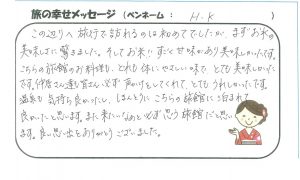 旅の幸せメッセージ（ペンネーム： H.K ）
この辺りへ旅行で訪れるのは初めてでしたが、まずお米の
美味しさに驚きました。そしてお米に すごく味があり美味しかったです。
こちらの旅館のお料理も、とても体にやさしい味で とても美味しかった
です。仲居さん達も皆さん必ず声かけをしてくれて、とてもうれしかったです。
温泉も気持ち良かったし、ほんとうに こちらの旅館に泊まれて
良かったと思います。また来たいなぁと必ず思う旅館だと思い
ます。良い思い出をありがとうございました。